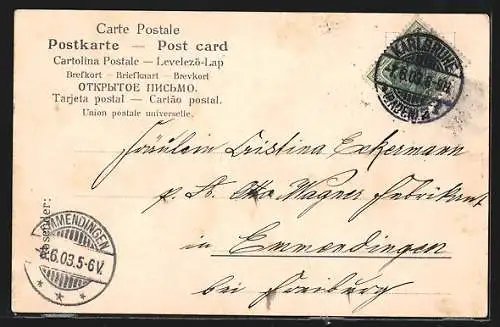 Carte Postale
Postkarte — Post card
Cartolina Postale — Levelező-Lap
Brefkort — Briefkaart — Brevkort
ОТКРЫТОЕ ПИСЬМО.
Tarjeta postal — Cartão postal.
Union postale universelle.
KARLSRUHE
4.6.03.5-
(BADEN)
Fräulein Cristina Eckermann
p. Ad. Otto Wagner Fabrikant
in Emmendingen
bei Freiburg
Absender:
EMMENDINGEN
6.03.5-6V.
* * *